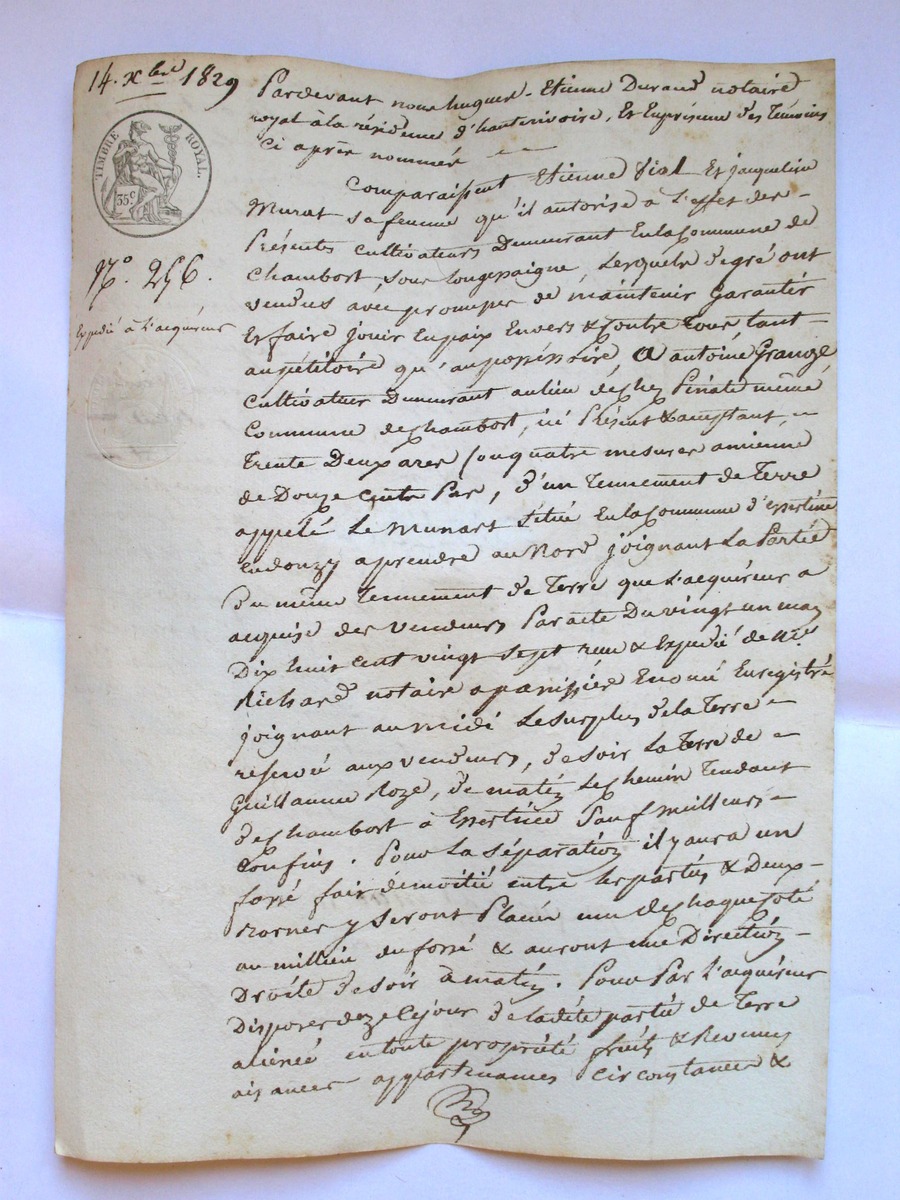 14. Xbre 1829
TIMBRE ROYAL.
35c
N.° 256.
Expedié à l'acquéreur
Pardevant nous hugues-Etienne Durand notaire
royal à la résidence d'hauterivoire, Et En présence des Témoins
Ci après nommés
Comparaissent Etienne Vial Et jacqueline
Murat sa femme qu'il autorise à l'effet des
Présentes cultivateurs Demeurant En la Commune de
Chambort, sous longessaigne, Lesquels de gré ont
vendus avec promesse de maintenir Garantir
Et faire jouir En paix Envers & Contre Tous, tant
au pétitoire qu'au possessoire, a antoine Grange
Cultivateur Demeurant au lieu de chez Pinate même
Commune de chambort, ici Présent & acceptant,
Trente Deux ares (ou quatre mesures ancienne
de Douze Cents Pas, d'un Tennement de Terre
appelé Le Munart située En la Commune d'essertine
en donzy a prendre au Nord joignant La Partie
Du même Tennement de Terre que L'acquéreur a
acquise des vendeurs Par acte Du vingt un may
Dix huit cent vingt sept reçu & Expedié de Me
Richard notaire a panissière En oué Enregistré
joignant au midi Le surplus de la Terre
reservé aux vendeurs, de soir La Terre de
Guillaume Roze, de matin Le chemin Tendant
de chambort à Essertine Sauf meilleurs
Confins. Pour La séparation il y aura un
fossé fait de moitié entre les parties & Deux
Bornes y seront Placés une de chaque coté
au millieu du fossé & auront une Direction
Droite de soir à matin. Pour Par L'acquéreur
Disposer dez ce jour de la dite partie de Terre
aliénée en toute propriété fruits & Revenus
aisances appartenances circonstances &